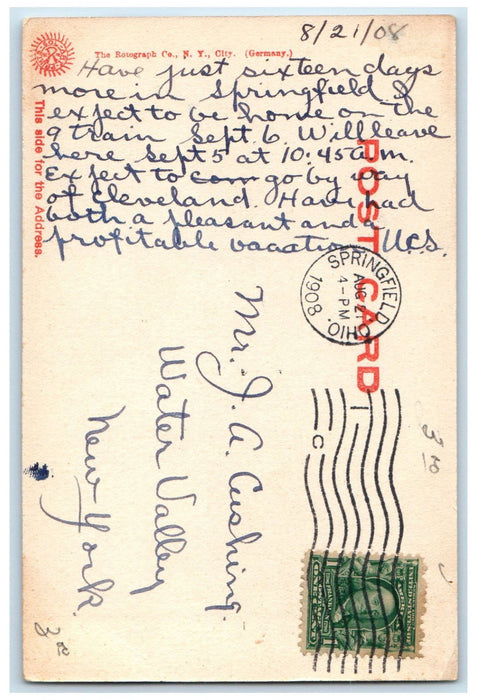 8/21/08
The Rotograph Co., N. Y., City. (Germany.)
Have just sixteen days
more in Springfield &
expect to be home on the
9 train Sept. 6. Will leave
here Sept 5 at 10:45 a.m.
Expect to com go by way
of Cleveland. Have had
both a pleasant and a
profitable vacation. U.C.S.
This side for the Address.
POST CARD
SPRINGFIELD
AUG 21
4-PM
1908.
OHIO.
Mr. J. A. Cushing.
Water Valley
New York.
C
1
UNITED STATES OF
ONE CENT